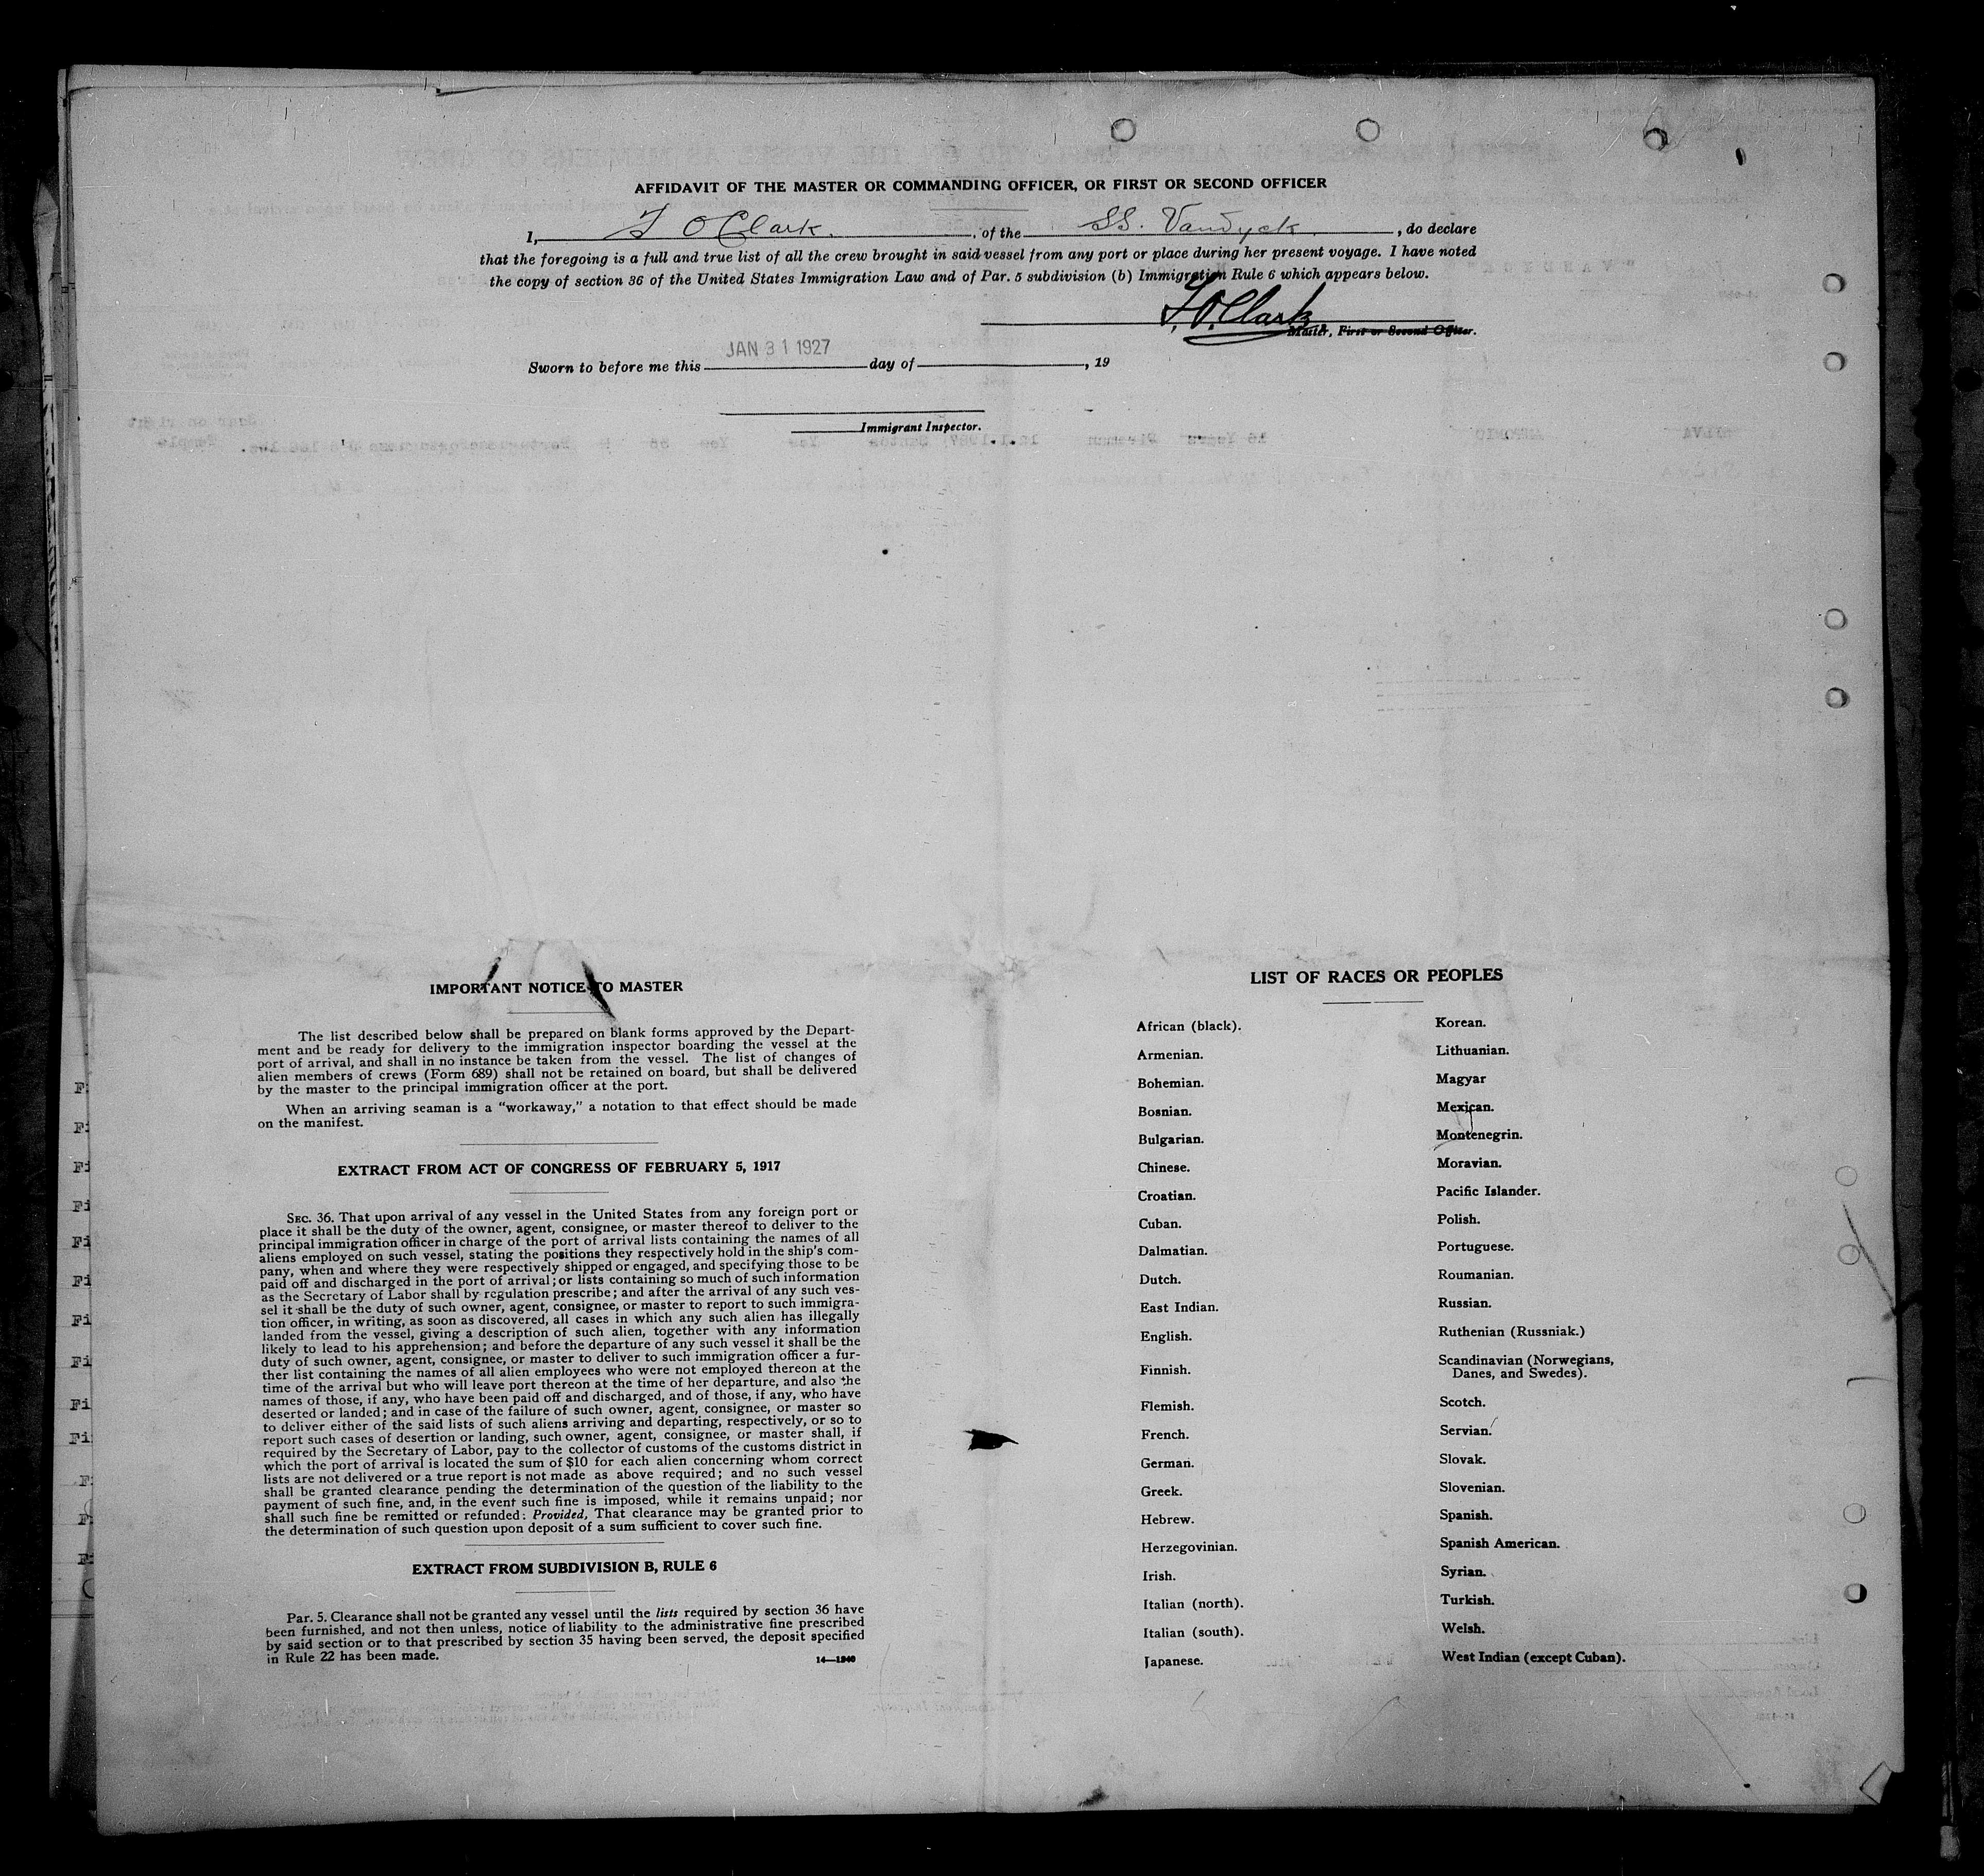 AFFIDAVIT OF THE MASTER OR COMMANDING OFFICER, OR FIRST OR SECOND OFFICER
I, F O Clark. , of the SS. Vandyck. , do declare
that the foregoing is a full and true list of all the crew brought in said vessel from any port or place during her present voyage. I have noted
the copy of section 36 of the United States Immigration Law and of Par. 5 subdivision (b) Immigration Rule 6 which appears below.
F.O. Clark
Master, First or Second Officer.
JAN 31 1927
Sworn to before me this day of , 19
Immigrant Inspector.
IMPORTANT NOTICE TO MASTER
The list described below shall be prepared on blank forms approved by the Depart-
ment and be ready for delivery to the immigration inspector boarding the vessel at the
port of arrival, and shall in no instance be taken from the vessel. The list of changes of
alien members of crews (Form 689) shall not be retained on board, but shall be delivered
by the master to the principal immigration officer at the port.
When an arriving seaman is a "workaway," a notation to that effect should be made
on the manifest.
EXTRACT FROM ACT OF CONGRESS OF FEBRUARY 5, 1917
SEC. 36. That upon arrival of any vessel in the United States from any foreign port or
place it shall be the duty of the owner, agent, consignee, or master thereof to deliver to the
principal immigration officer in charge of the port of arrival lists containing the names of all
aliens employed on such vessel, stating the positions they respectively hold in the ship's com-
pany, when and where they were respectively shipped or engaged, and specifying those to be
paid off and discharged in the port of arrival; or lists containing so much of such information
as the Secretary of Labor shall by regulation prescribe; and after the arrival of any such ves-
sel it shall be the duty of such owner, agent, consignee, or master to report to such immigra-
tion officer, in writing, as soon as discovered, all cases in which any such alien has illegally
landed from the vessel, giving a description of such alien, together with any information
likely to lead to his apprehension; and before the departure of any such vessel it shall be the
duty of such owner, agent, consignee, or master to deliver to such immigration officer a fur-
ther list containing the names of all alien employees who were not employed thereon at the
time of the arrival but who will leave port thereon at the time of her departure, and also the
names of those, if any, who have been paid off and discharged, and of those, if any, who have
deserted or landed; and in case of the failure of such owner, agent, consignee, or master so
to deliver either of the said lists of such aliens arriving and departing, respectively, or so to
report such cases of desertion or landing, such owner, agent, consignee, or master shall, if
required by the Secretary of Labor, pay to the collector of customs of the customs district in
which the port of arrival is located the sum of $10 for each alien concerning whom correct
lists are not delivered or a true report is not made as above required; and no such vessel
shall be granted clearance pending the determination of the question of the liability to the
payment of such fine, and, in the event such fine is imposed, while it remains unpaid; nor
shall such fine be remitted or refunded: Provided, That clearance may be granted prior to
the determination of such question upon deposit of a sum sufficient to cover such fine.
EXTRACT FROM SUBDIVISION B, RULE 6
Par. 5. Clearance shall not be granted any vessel until the lists required by section 36 have
been furnished, and not then unless, notice of liability to the administrative fine prescribed
by said section or to that prescribed by section 35 having been served, the deposit specified
in Rule 22 has been made.
14—1240
LIST OF RACES OR PEOPLES
African (black).
Armenian.
Bohemian.
Bosnian.
Bulgarian.
Chinese.
Croatian.
Cuban.
Dalmatian.
Dutch.
East Indian.
English.
Finnish.
Flemish.
French.
German.
Greek.
Hebrew.
Herzegovinian.
Irish.
Italian (north).
Italian (south).
Japanese.
Korean.
Lithuanian.
Magyar
Mexican.
Montenegrin.
Moravian.
Pacific Islander.
Polish.
Portuguese.
Roumanian.
Russian.
Ruthenian (Russniak.)
Scandinavian (Norwegians,
Danes, and Swedes).
Scotch.
Servian.
Slovak.
Slovenian.
Spanish.
Spanish American.
Syrian.
Turkish.
Welsh.
West Indian (except Cuban).